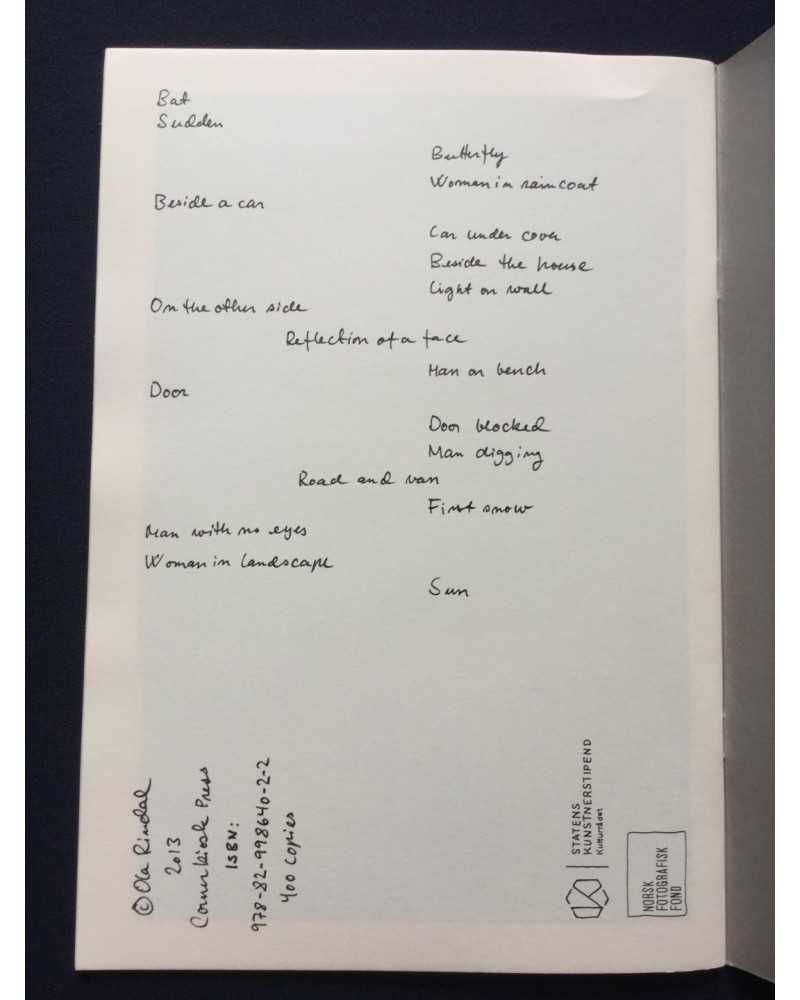 Bat
Sudden
Butterfly
Woman in raincoat
Beside a car
Car under cover
Beside the house
Light on wall
On the other side
Reflection of a face
Man on bench
Door
Door blocked
Man digging
Road and van
First snow
Man with no eyes
Woman in landscape
Sun
© Ola Rindal
2013
Cornerkiosk Press
ISBN:
978-82-998640-2-2
400 copies
STATENS
KUNSTNERSTIPEND
Kulturrådet
NORSK
FOTOGRAFISK
FOND